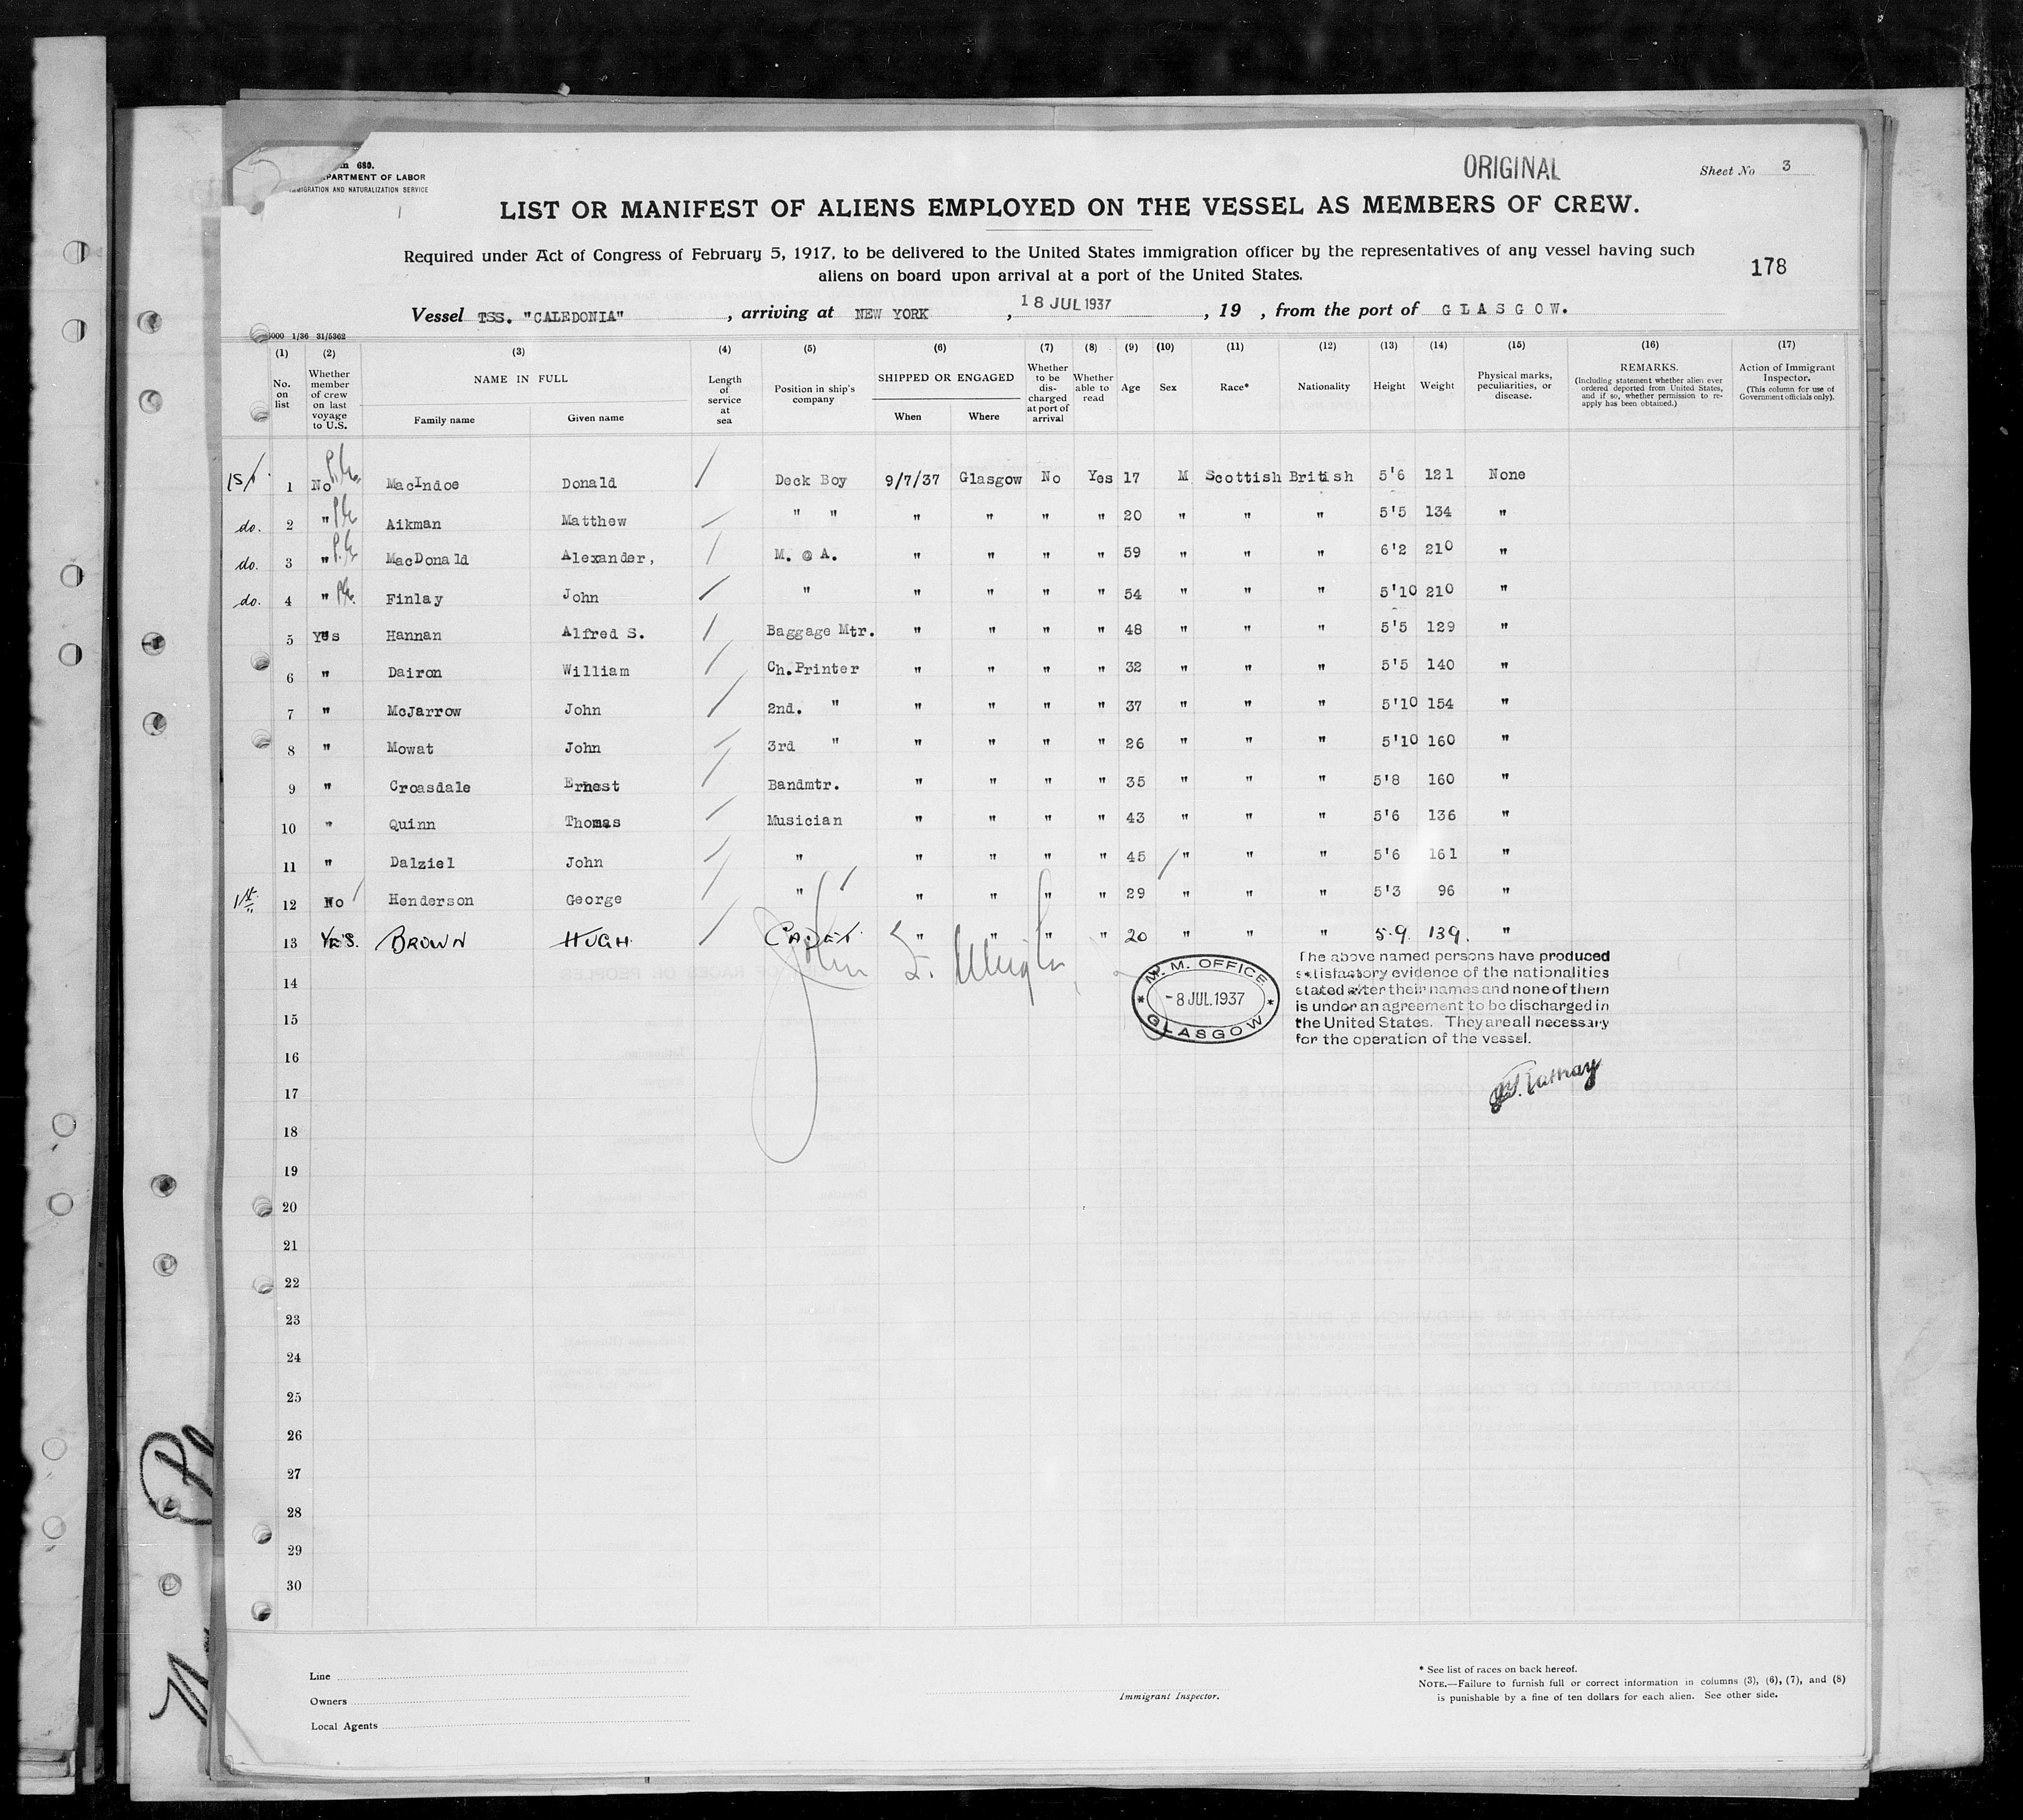 ORIGINAL
Sheet No 3
680.
PARTMENT OF LABOR
IMMIGRATION AND NATURALIZATION SERVICE
LIST OR MANIFEST OF ALIENS EMPLOYED ON THE VESSEL AS MEMBERS OF CREW.
Required under Act of Congress of February 5, 1917, to be delivered to the United States immigration officer by the representatives of any vessel having such
aliens on board upon arrival at a port of the United States.
178
Vessel TSS. "CALEDONIA", arriving at NEW YORK, 18 JUL 1937, 19 , from the port of GLASGOW.
000 1/36 31/5362
(1) (2) (3) (4) (5) (6) (7) (8) (9) (10) (11) (12) (13) (14) (15) (16) (17)
No. on list
Whether member of crew on last voyage to U.S.
NAME IN FULL
Family name
Given name
Length of service at sea
Position in ship's company
SHIPPED OR ENGAGED
When
Where
Whether to be discharged at port of arrival
Whether able to read
Age
Sex
Race*
Nationality
Height
Weight
Physical marks, peculiarities, or disease.
REMARKS.
(Including statement whether alien ever ordered deported from United States, and if so, whether permission to re-apply has been obtained.)
Action of Immigrant Inspector.
(This column for use of Government officials only).
1st 1 No MacIndoe Donald / Deck Boy 9/7/37 Glasgow No Yes 17 M Scottish British 5'6 121 None
do. 2 " Aikman Matthew / " " " " " " 20 " " " 5'5 134 "
do. 3 " MacDonald Alexander, / M. @ A. " " " " 59 " " " 6'2 210 "
do. 4 " Finlay John / " " " " " 54 " " " 5'10 210 "
5 Yes Hannan Alfred S. / Baggage Mtr. " " " " 48 " " " 5'5 129 "
6 " Dairon William / Ch.Printer " " " " 32 " " " 5'5 140 "
7 " McJarrow John / 2nd. " " " " " 37 " " " 5'10 154 "
8 " Mowat John / 3rd " " " " " 26 " " " 5'10 160 "
9 " Croasdale Ernest / Bandmtr. " " " " 35 " " " 5'8 160 "
10 " Quinn Thomas / Musician " " " " 43 " " " 5'6 136 "
11 " Dalziel John / " " " " " 45 " " " 5'6 161 "
1st. 12 No Henderson George / " " " " " 29 " " " 5'3 96 "
13 YES. BROWN HUGH. / CADET. " " " " 20 " " " 5.9. 139. "
14
15
16
17
18
19
20
21
22
23
24
25
26
27
28
29
30
M. M. OFFICE
-8 JUL.1937
GLASGOW
The above named persons have produced
satisfactory evidence of the nationalities
stated after their names and none of them
is under an agreement to be discharged in
the United States. They are all necessary
for the operation of the vessel.
Line
Owners
Local Agents
Immigrant Inspector.
* See list of races on back hereof.
NOTE.—Failure to furnish full or correct information in columns (3), (6), (7), and (8)
is punishable by a fine of ten dollars for each alien. See other side.